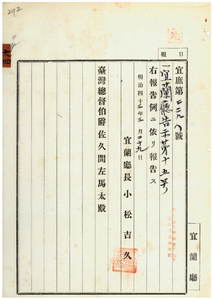 292
報
日
宜庶第二二九八號
一宜蘭廳告示第十五號
右報告例ニ依リ報告ス
明治四十年
月
日
宜蘭廳長小松吉久
臺灣總督伯爵佐久間左馬太殿
宜蘭廳